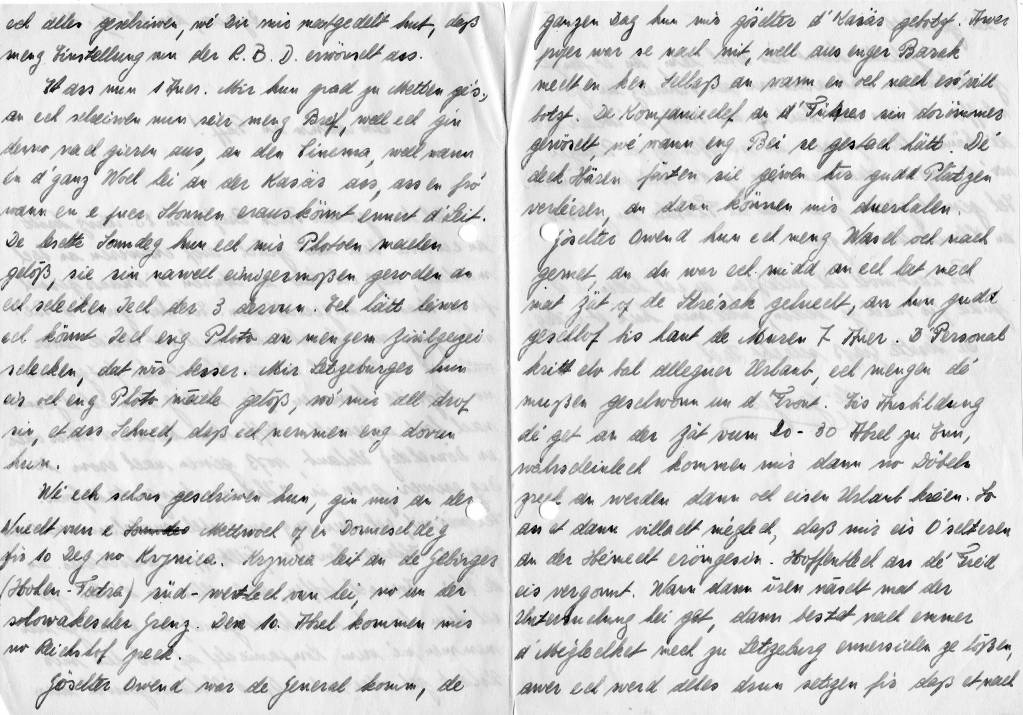 ech alles geschriwen, wé Dir mis matgedelt hut, daß
meng Einstellung un der R. B. D. erwörselt ass.
Et ass nun 1 Auer. Mir hun grad zu Metten gés,
an ech schreiwen nun séier meng Bréf, well ech gin
derno nach giesen aus, an den Cinema, well wann
en d'ganz Woch hei an der Kasär ass, ass en fró
wann en e puer Stonnen erauskönnt ennert d'Leit.
De leschte Sonndeg hun ech mis Photoen machen
geloß, sie sin nawell einigermoßen geroden an
ech schecken Iech der 3 dervun. Ech hätt léiwer
ech könnt Iech eng Photo an mengem Zivilgezei
schecken, dat wir besser. Mir Letzeburger hun
eis och eng Photo mache geloß, wó mis all drop
sin, et ass Schued, daß ech nemmen eng dovun
hun.
Wé ech schons geschriwen hun, gin mis an der
Nuecht vun e Mettwoch op en Donneschdeg
fis 10 Deg no Krynica. Krynica leit an de Gebirger
(Hohen-Tatra) süd-westlech vun hei, no un der
slowakescher Grenz. Den 10. Abrel kommen mis
no Reichshof zreck.
Göschter Owend war de General komm, de
ganzen Dag hun mis göschter d'Kasär gebotzt. Awer
puer war se nach nit, well aus enger Barak
mecht en ken Schlaß an wann en och nach esó vill
botzt. De Kompaniechef an d'Führer sin dorömmer
gewöselt, wé wann eng Bei se gestach hätt. Dé
dech Hären fäerten sie géwen hir gudd Plätzgen
verléieren, an dann können mis duerhalen.
Göschter Owend hun ech meng Wäsch och nach
gemet an du war ech midd an ech hat mech
mat Zät op de Stréisak geluecht, an hun gudd
geschlof bis haut de Muren 7 Auer. D'Personal
kritt elo bal alleguer Urlaub, ech mengen dé
mußen geschwönn un d'Front. Eis Ausbildung
dé get an der Zät vum 20-30 Abrel zu Enn,
wahrscheinlech kommen mis dann no Döbeln
zreck an werden dann och eisen Urlaub kréien. So
an et dann villäicht méglech, daß mis eis O'schteren
an der Hémecht erömgesin. Hoffentlech ass dé Fréd
eis vergonnt. Wann dann iren näischt mat der
Untersuchung hei get, dann bestet nach emmer
d'Méglechket mech zu Letzeburg ennersichen ze loßen,
awer ech werd alles drun setzen fir daß et nach